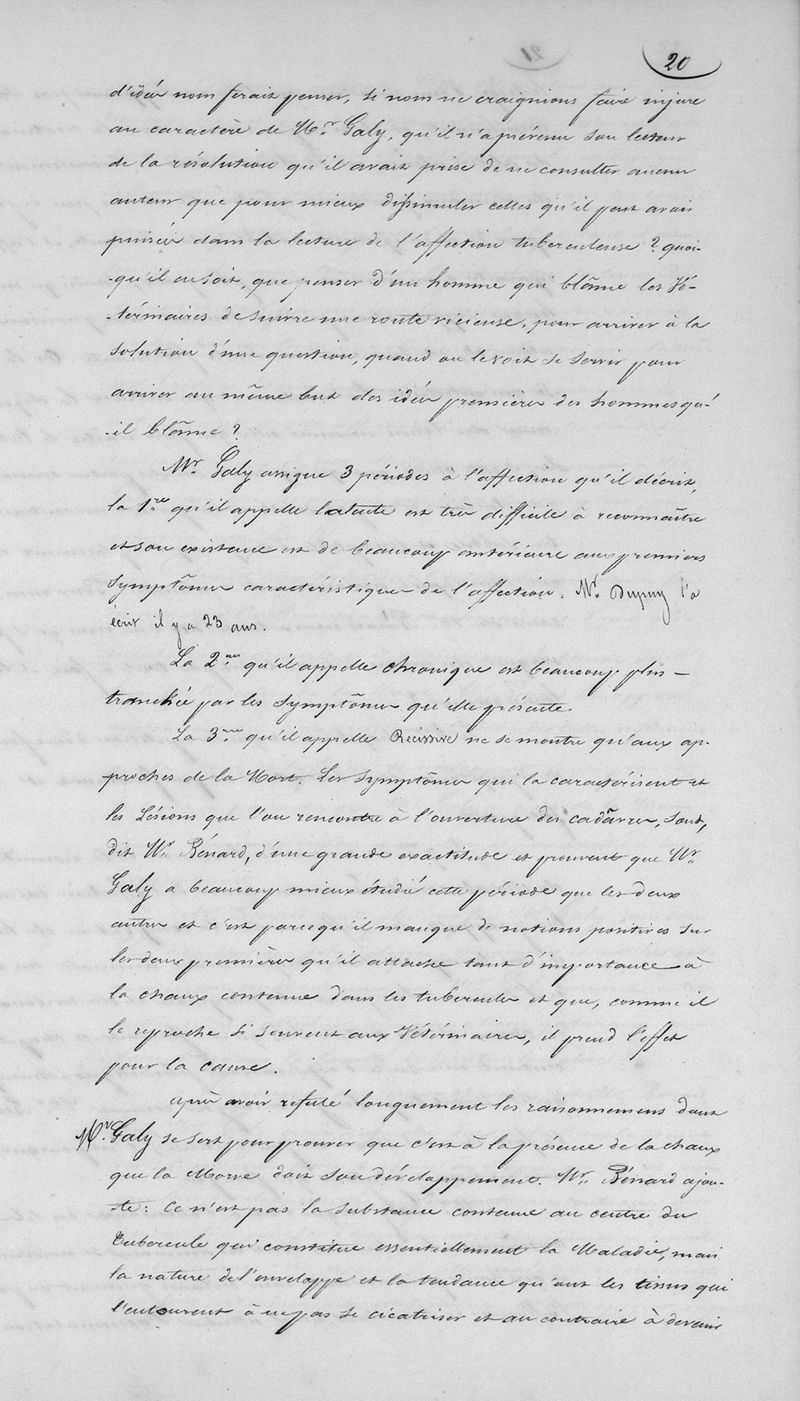 20
d'idées nous ferait penser, si nous ne craignions faire injure
au caractère de Mr Galy, qu'il n'a prévenu son lecteur
de la résolution qu'il avait prise de ne consulter aucun
auteur que pour mieux dissimuler celles qu'il peut avoir
puisées dans la lecture de l'affection tuberculeuse ? quoi-
-qu'il en soit, que penser d'un homme qui blâme les Vé-
-térinaires de suivre une route vicieuse, pour arriver à la
solution d'une question, quand on le voit se servir pour
arriver au même but des idées premières des hommes qu'
-il blâme ?
Mr. Galy assigne 3 périodes à l'affection qu'il décrit,
la 1re qu'il appelle latente est très difficile à reconnaître
et son existence est de beaucoup antérieure aux premiers
symptômes caractéristiques de l'affection. Mr. Dupuy l'a
écrit il y a 23 ans.
La 2me qu'il appelle chronique est beaucoup plus —
tranchée par les symptômes qu'elle présente.
La 3me qu'il appelle Récissive ne se montre qu'aux ap-
proches de la Mort. Les symptômes qui la caractérisent et
les Lésions que l'on rencontre à l'ouverture des cadâvres, sont,
dit Mr. Bénard, d'une grande exactitude et prouvent que Mr.
Galy a beaucoup mieux étudié cette période que les deux
autres et c'est parcequ'il manque de notions positives su
les deux premières qu'il attache tant d'importance à
la chaux contenue dans les tubercules et que, comme il
le reproche si souvent aux Vétérinaires, il prend l'effet
pour la cause.
après avoir réfuté longuement les raisonnemens dont
Mr. Galy se sert pour prouver que c'est à la présence de la chaux
que la Morve doit son développement. Mr. Bénard ajou-
-te : Ce n'est pas la substance contenue au centre du
Tubercule qui constitue essentiellement la Maladie, mais
la nature de l'enveloppe et la tendance qu'ont les tissus qui
l'entourent à ne pas se cicatriser et au contraire à devenir